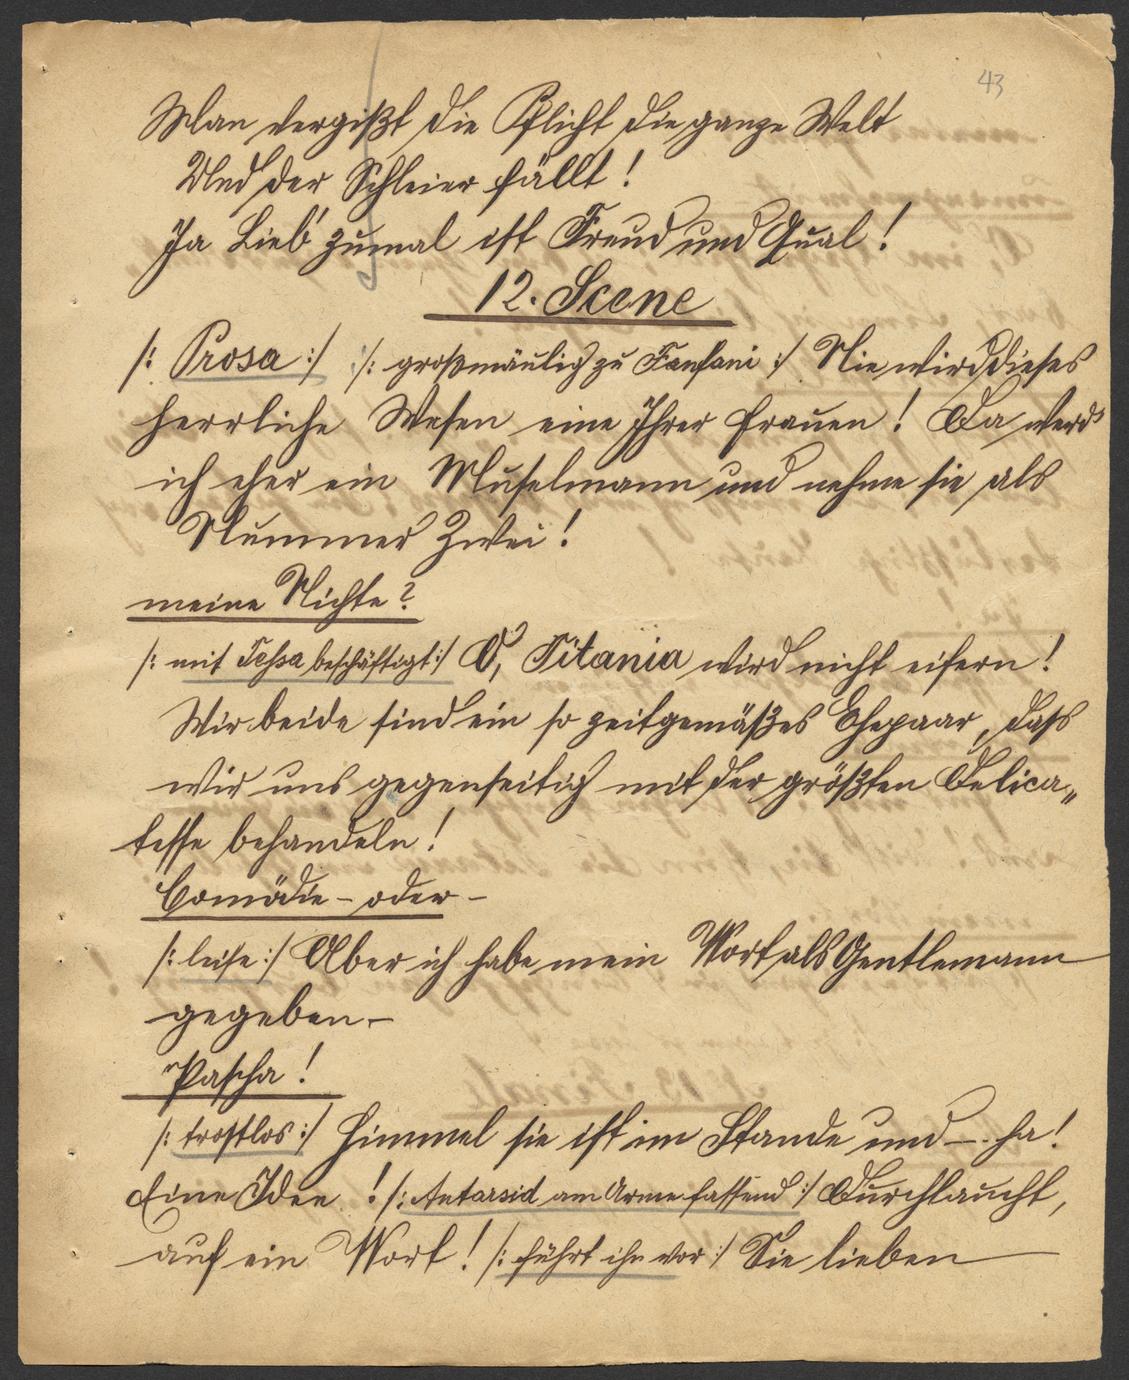 43
Man vergißt die Pflicht die ganze Welt
Und der Schleier fällt!
Ja Lieb' zumal ist Freud und Qual!
12. Scene
/: Prosa :/ /: großmäulig zu Fanfani :/ Nie wird dieses
herrliche Wesen eine Ihrer Frauen! Da werd'
ich eher ein Muselmann und nehme sie als
Nummer Zwei!
meine Nichte?
/: mit Tessa beschäftigt :/ O, Titania wird nicht eifern!
Wir beide sind ein so zeitgemäßes Ehepaar, dass
wir uns gegenseitig mit der größten Delica„
tesse behandeln!
Comödie - oder -
/: leise :/ Aber ich habe mein Wort als Gentlemann
gegeben -
Pascha!
/: trostlos :/ Himmel sie ist im Stande und -. ha!
Eine Idee! /: Antarsid am Arme fassend :/ Durchlaucht,
auf ein Wort! /: führt ihn vor :/ Sie lieben —